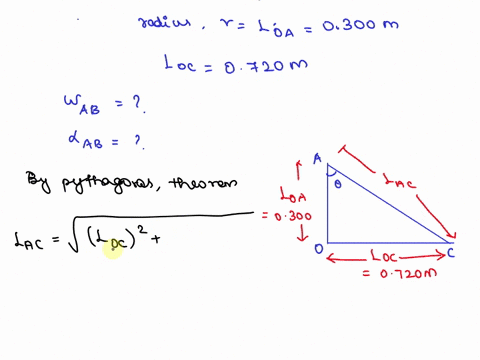 radius, r = L_OA = 0.300 m
L_OC = 0.720 m
ω_AB = ?
α_AB = ?
By pythagoras, theorem
L_AC = √((L_OC)² +
A
θ
L_AC
L_OA
= 0.300
O
L_OC
C
= 0.720m